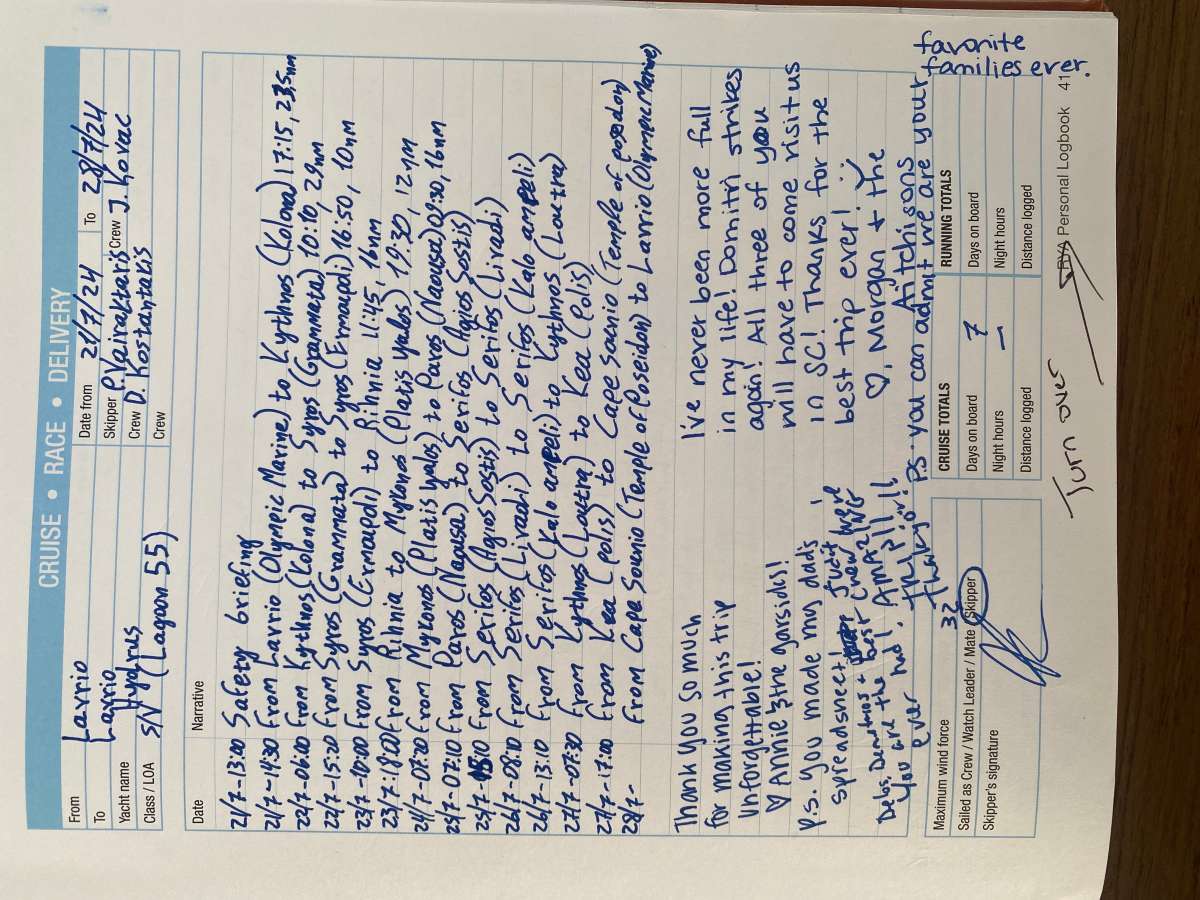 CRUISE • RACE • DELIVERY
From Lavrio
To Lavrio
Yacht name Hydrus
Class / LOA S/V (Lagoon 55)
Date from 21/7/24 To 28/7/24
Skipper P. Vairaktaris Crew J. Kovac
Crew D. Kostantakis
Crew
Date Narrative
21/7-13:00 Safety briefing
21/7-14:30 From Lavrio (Olympic Marine) to Kythnos (Kolona) 17:15, 23,5nm
22/7-06:00 From Kythnos (Kolona) to Syros (Grammata) 10:10, 29nm
22/7-15:20 From Syros (Grammata) to Syros (Ermoupoli) 16:50, 10nm
23/7-10:00 From Syros (Ermoupoli) to Rihnia 11:45, 16nm
23/7-18:00 From Rihnia to Mykonos (Platis yalos) 19:30, 12nm
24/7-07:20 From Mykonos (Platis yalos) to Paros (Naousa) 09:30, 16nm
25/7-07:10 From Paros (Naousa) to Serifos (Agios Sostis)
25/7-15:10 From Serifos (Agios Sostis) to Serifos (Livadi)
26/7-08:10 From Serifos (Livadi) to Serifos (Kalo ampeli)
26/7-13:10 From Serifos (Kalo ampeli) to Kythnos (Loutra)
27/7-07:30 From Kythnos (Loutra) to Kea (Polis)
27/7-17:00 From Kea (polis) to Cape Sounio (Temple of posedon)
28/7- From Cape Sounio (Temple of Poseidon) to Lavrio (Olympic Marine)
Thank you so much
for making this trip
unforgettable!
♡ Annie & the garsids!!
p.s. you made my dad's
spreadsheet!
Debs, Demetrios + Just know were
You are the best crew we
ever had! AMAZING
TRIP!!!
Thank you!!
I've never been more full
in my life! Domitri strikes
again! All three of you
will have to come visit us
in SC! Thanks for the
best trip ever! :)
♡, Morgan + the
Aitchisons
P.S. you can admit we are your
favorite
families ever.
Maximum wind force 32
Sailed as Crew / Watch Leader / Mate / Skipper
Skipper's signature
CRUISE TOTALS
Days on board 7
Night hours —
Distance logged
RUNNING TOTALS
Days on board
Night hours
Distance logged
RYA Personal Logbook 41
Turn over